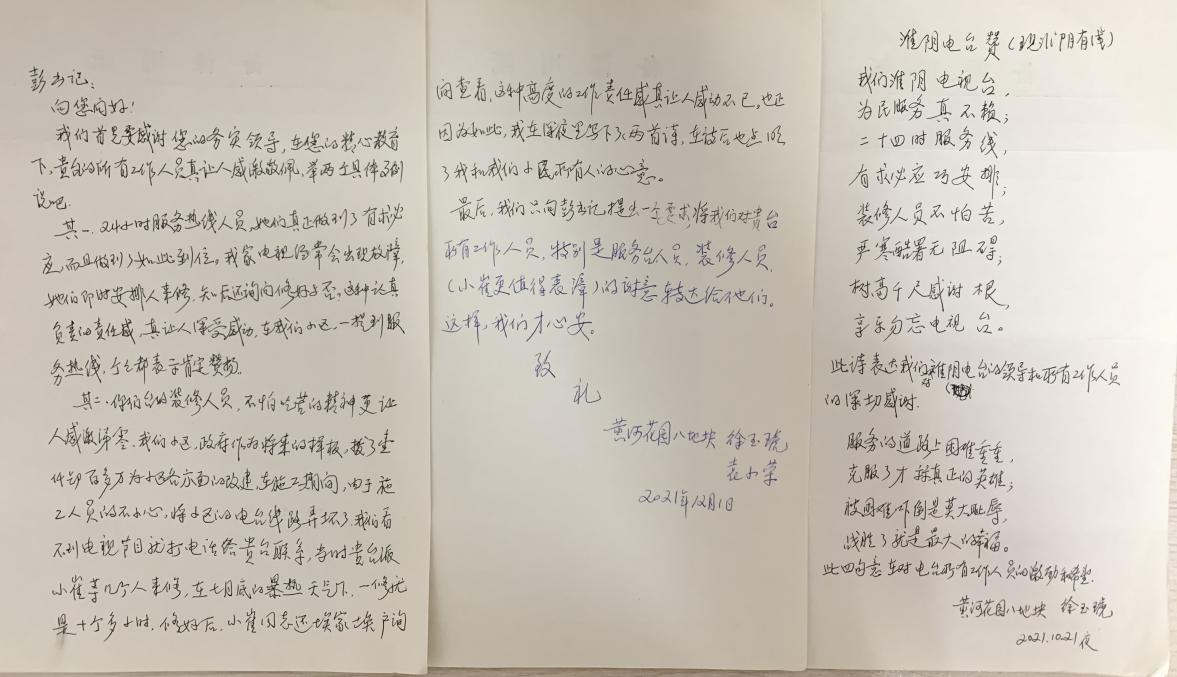 彭书记:
向您问好!
我们首先要感谢您的务实领导,在您的精心教育
下,贵台的所有工作人员真让人感激敬佩,举两个具体事例
说吧.
其一、24小时服务热线人员,她们真正做到了有求必
应,而且做到了如此到位。我家电视经常会出现故障,
她们即时安排人来修,知后还询问修好了否?这种认真
负责的责任感,真让人深受感动,在我们小区,一提到服
务热线,个个都表示肯定赞扬。
其二、你们台的装修人员,不怕吃苦的精神更让
人感激涕零,我们小区,政府作为将来的样板,拨了
百多万为小区各方面的改建,在施工期间,由于施
工人员的不小心,将小区的电台线路弄坏了,我们看
不到电视节目就打电话给贵台联系,当时贵台派
小崔等几个人来修,在七月底的暴热天气下,一修就
是十个多小时.修好后,小崔同志还挨家挨户询
问查看,这种高度的工作责任感真让人感动不已,也正
因为如此,我在深夜里写下了两首诗,在诗后也点明
了我和我们小区所有人的心意。
最后,我们只向彭书记提出一个要求,将我们对贵台
所有工作人员,特别是服务台人员,装修人员,
(小崔更值得表障)的谢意转达给他们。
这样,我们才心安。
致
礼
黄河花园八地块 徐玉琥
袁小荣
2021年12月1日
淮阴电台赞(现淮阴有线)
我们淮阴电视台,
为民服务真不赖;
二十四时服务线,
有求必应巧安排;
装修人员不怕苦,
严寒酷署无阻碍;
树高千尺感谢根,
享乐勿忘电视台。
此诗表达我们对淮阴电台的领导和所有工作人员
的深切感谢.
服务的道路上困难重重,
克服了才称真正的英雄;
被困难吓倒是莫大耻辱,
战胜了就是最大的幸福。
此四句意在对电台所有工作人员的激励和希望.
黄河花园八地块 徐玉琥
2021.10.21夜